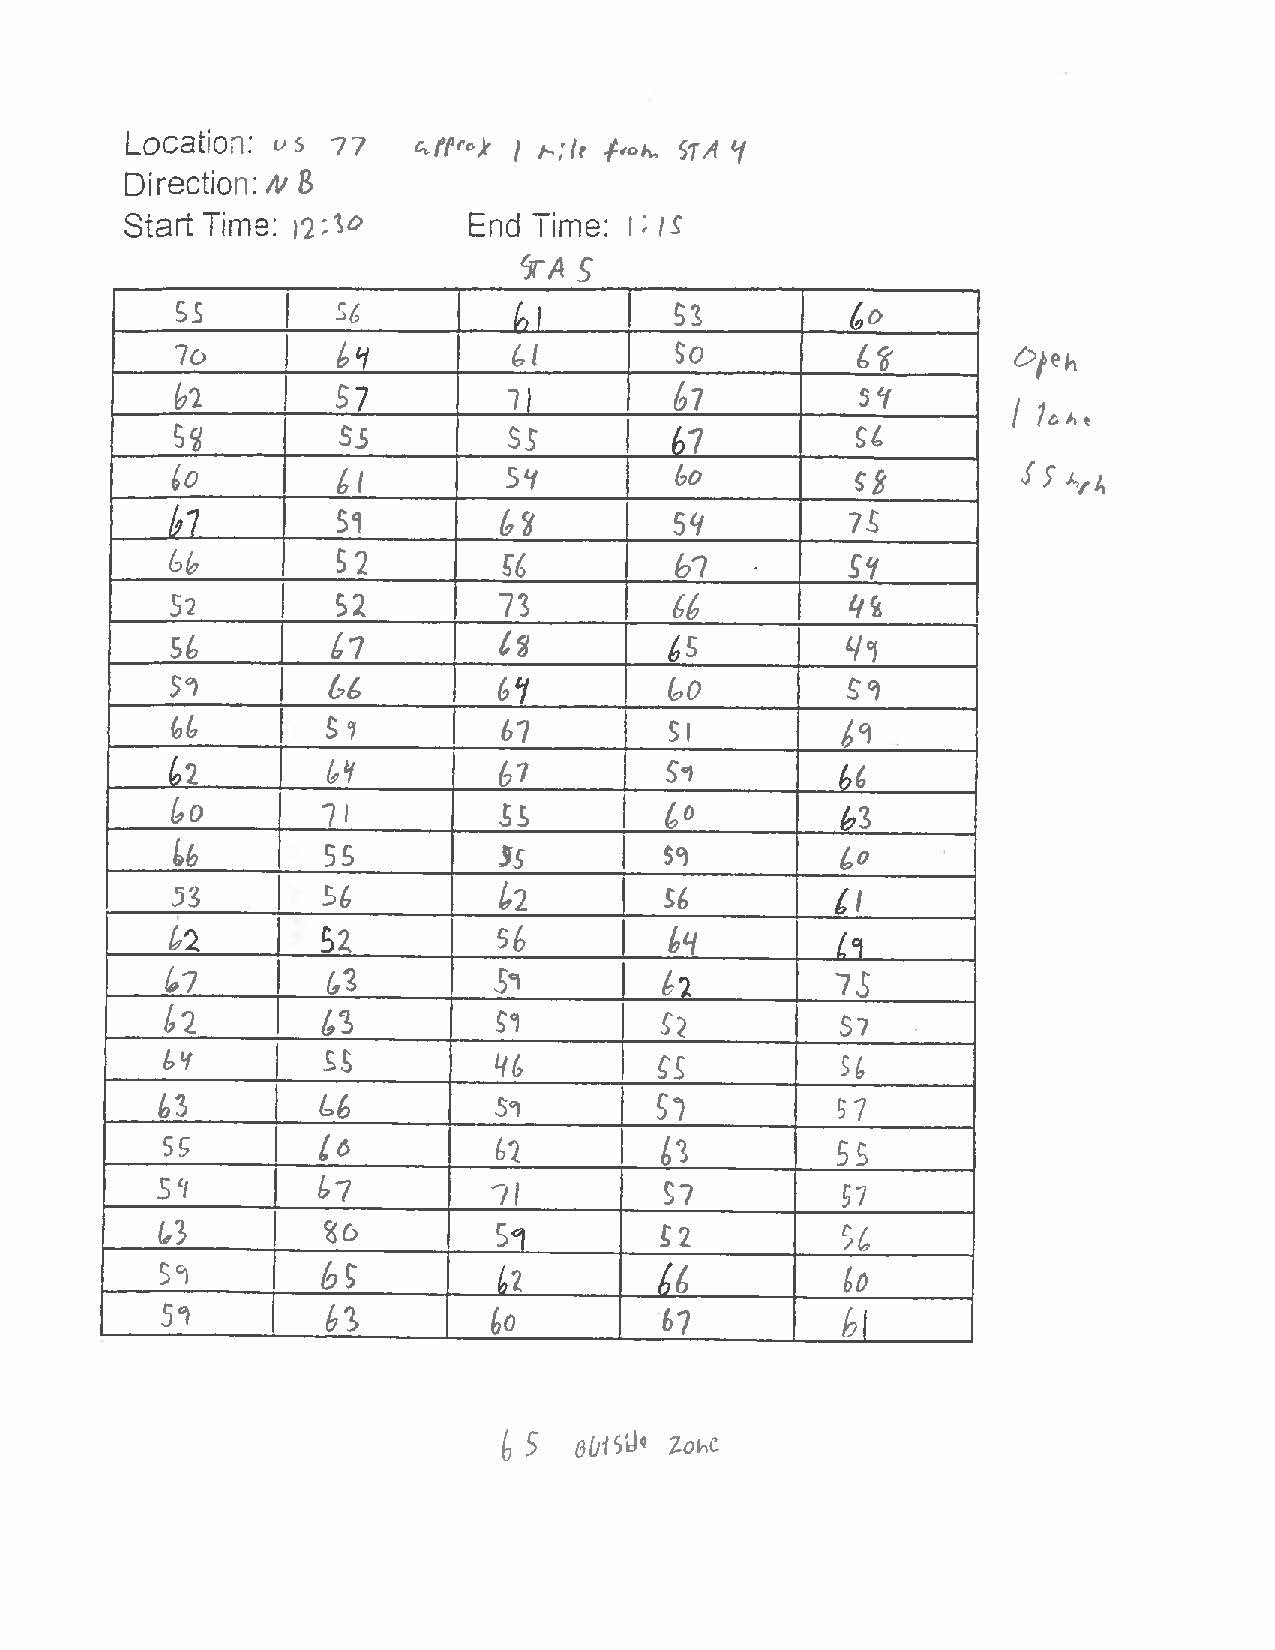 Location: US 77 approx 1 mile from STA 4
Direction: NB
Start Time: 12:30 End Time: 1:15
STA 5
55 56 61 53 60
70 64 61 50 68 Open
62 57 71 67 54 1 lane
58 55 55 67 56
60 61 54 60 58 55 mph
67 59 68 54 75
66 52 56 67 54
52 52 73 66 48
56 67 68 65 49
59 66 64 60 59
66 59 67 51 69
62 64 67 59 66
60 71 55 60 63
66 55 55 59 60
53 56 62 56 61
62 52 56 64 69
67 63 59 62 75
62 63 59 52 57
64 55 46 55 56
63 66 59 57
55 60 62 63 55
54 67 71 57 57
63 80 59 52 56
59 65 62 66 60
59 63 60 67 61
65 outside zone